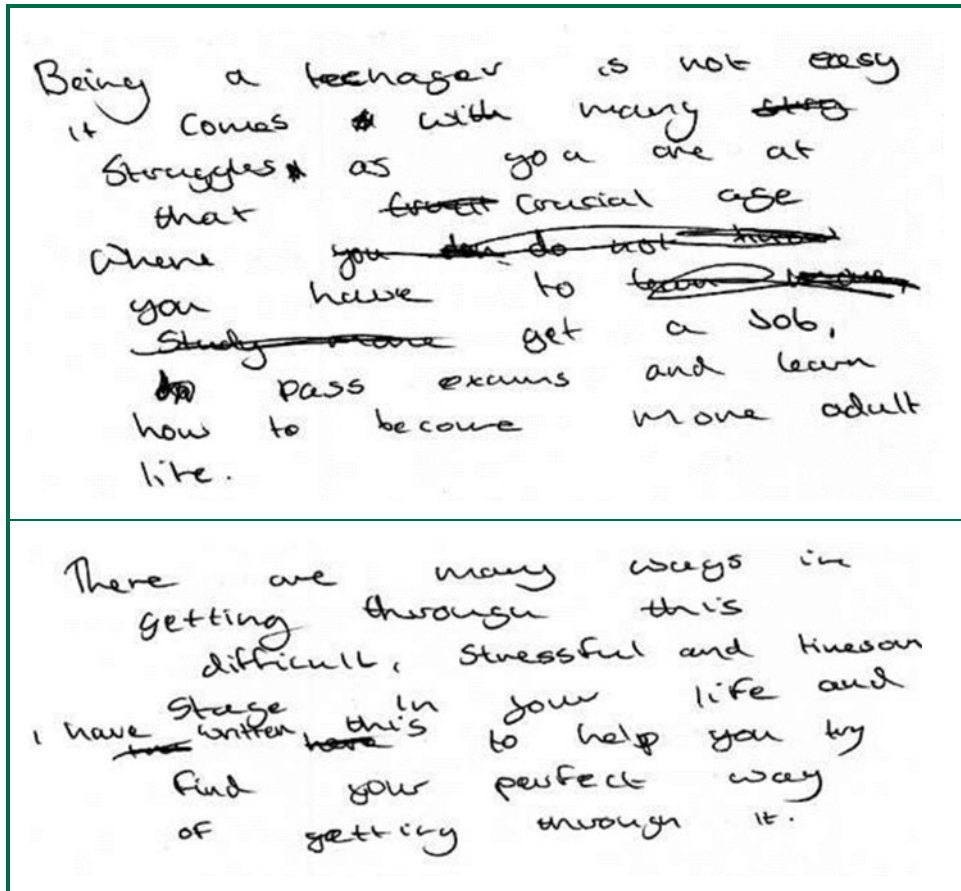 Being a teenager is not easy
it comes with many
struggles as you are at
that crucial age
where
you have to
get a Job,
pass exams and learn
how to become more adult
like.
There are many ways in
getting through this
difficult, stressful and
stage in your life and
I have written this to help you try
find your perfect way
of getting through it.